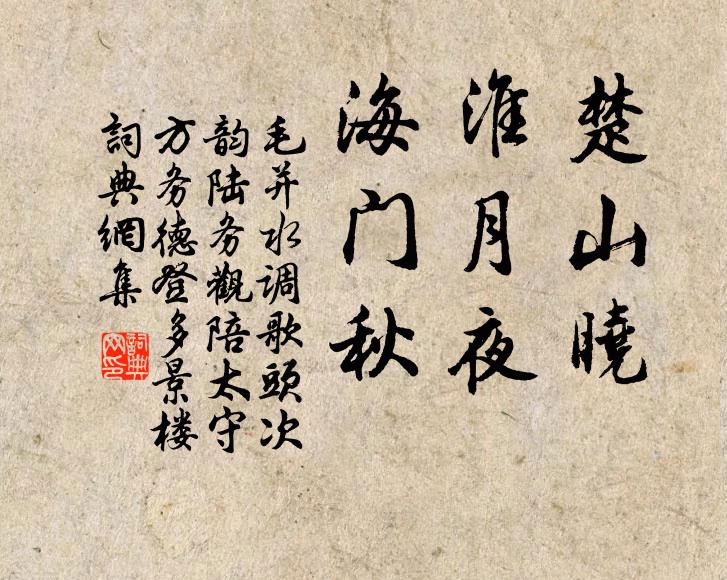 楚山曉
淮月夜
海门秋
毛并水调歌頭次
韵陆务觀陪太守
方务德登多景楼
詞典網集
詞典
网印